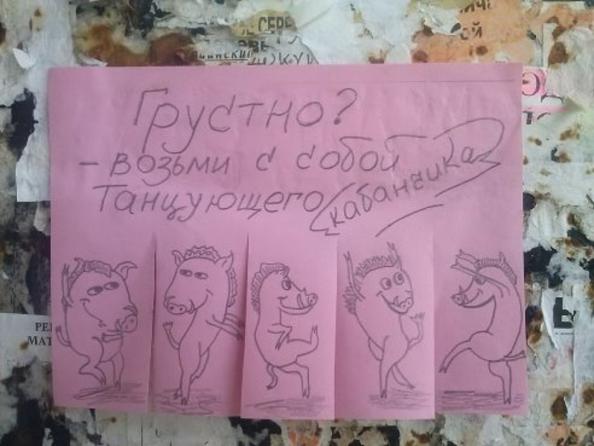 Е СЕРЕ
Грустно?
- возьми с собой
танцующего кабанчика
РЕ
МАТ